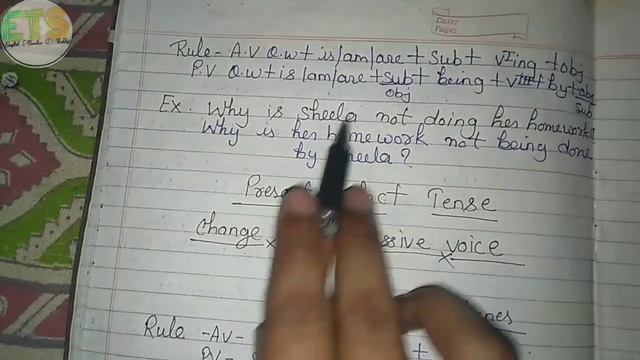 ETS
Date:
Pages
Rule - A.V Q.w + is/am/are + sub + vIing + obj
P.V Q.w + is/am/are + sub + being + vIII + by + obj
obj
sub
Ex. Why is sheela not doing her homework?
Why is her homework not being done
by sheela?
Tense
Change voice
Rule - AV-
PV- +